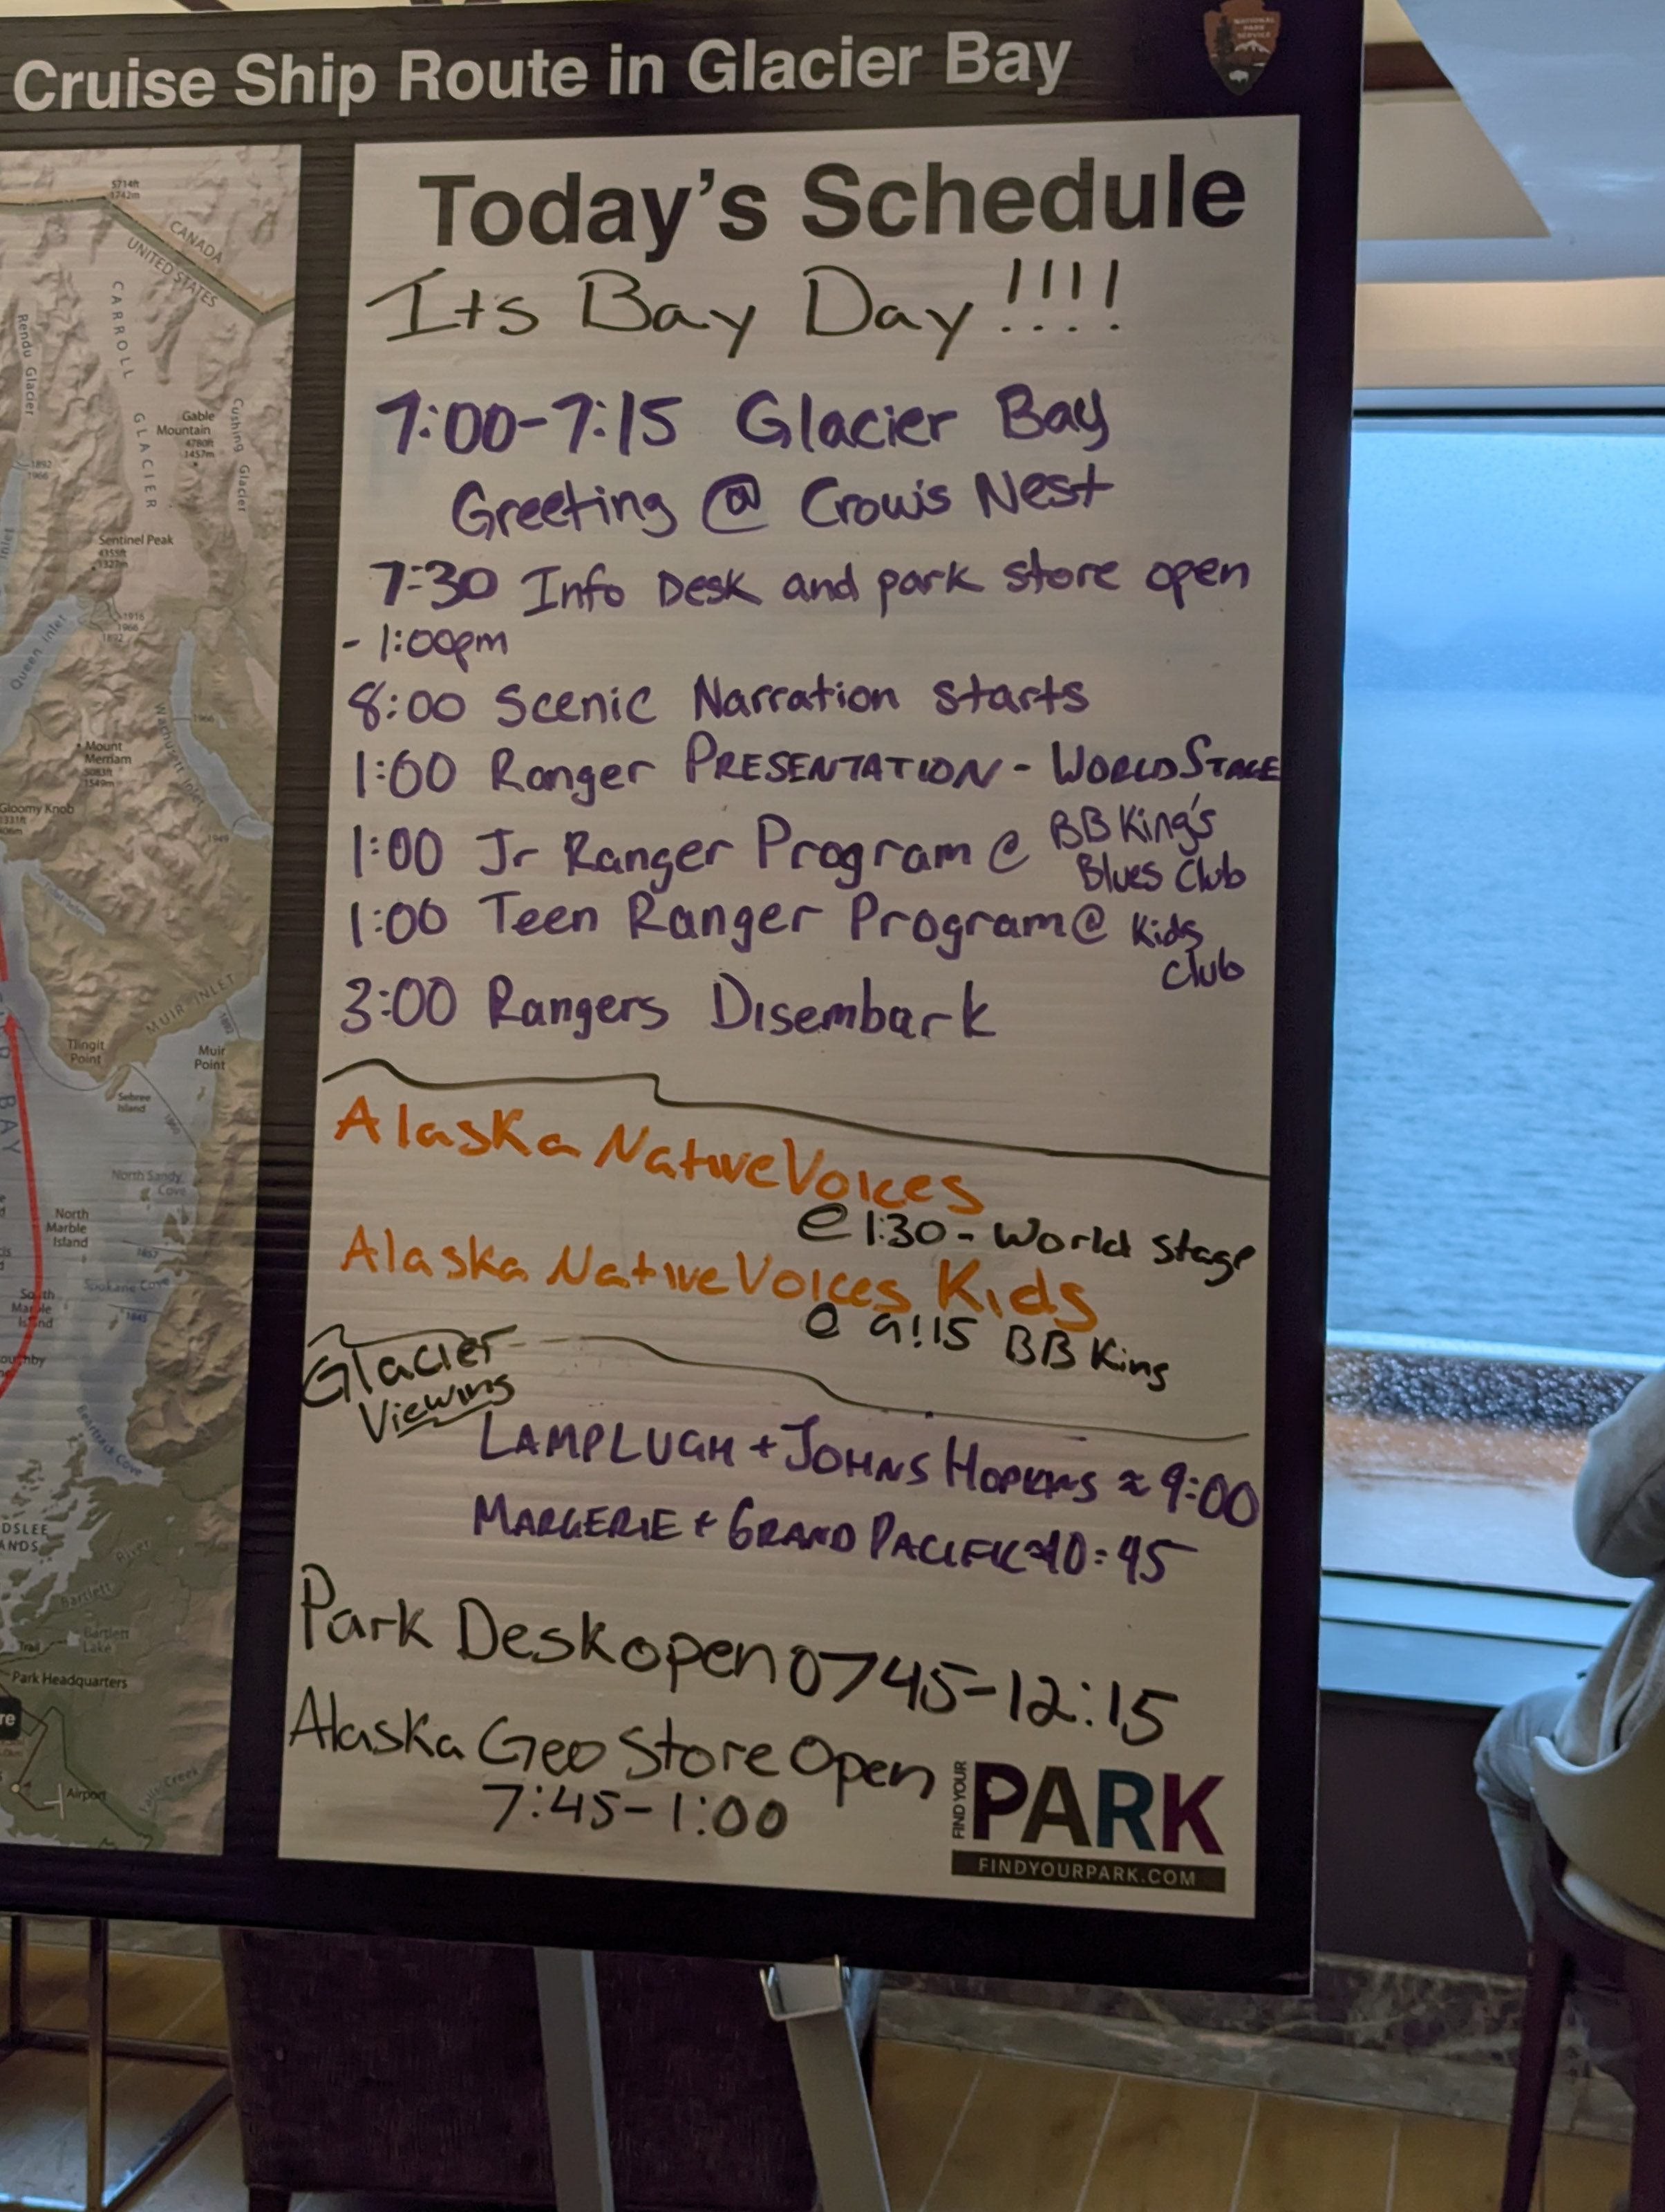 Cruise Ship Route in Glacier Bay
NATIONAL
PARK
SERVICE
5714ft
1742m
CANADA
UNITED STATES
CARROLL
GLACIER
Rendu Glacier
Cushing Glacier
Gable
Mountain
4780ft
1457m
1892
1966
Sentinel Peak
4355ft
1327m
Inlet
1916
1966
1892
Queen Inlet
Wachusett Inlet
1966
Mount
Merriam
5083ft
1549m
Gloomy Knob
1331ft
406m
1949
Tidal Inlet
MUIR INLET
1892
Tlingit
Point
Muir
Point
Sebree
Island
1860
BAY
North Sandy
Cove
North
Marble
Island
1857
Spokane Cove
South
Marble
Island
1845
Beartrack Cove
DSLEE
ANDS
River
Bartlett
Bartlett
Lake
Trail
Park Headquarters
Airport
Falls Creek
Today's Schedule
Its Bay Day!!!!
7:00-7:15 Glacier Bay
Greeting @ Crow's Nest
7:30 Info Desk and park store open
- 1:00pm
8:00 Scenic Narration starts
1:00 Ranger PRESENTATION - WORLD STAGE
1:00 Jr Ranger Program @ BB King's
Blues Club
1:00 Teen Ranger Program @ Kids
Club
3:00 Rangers Disembark
Alaska Native Voices
@ 1:30 - World Stage
Alaska Native Voices Kids
@ 9:15 BB King
Glacier
Viewing
LAMPLUGH + JOHNS HOPKINS ≈ 9:00
MARGERIE + GRAND PACIFIC ≈ 10:45
Park Desk open 0745-12:15
Alaska Geo Store Open
7:45-1:00
FIND YOUR
PARK
FINDYOURPARK.COM